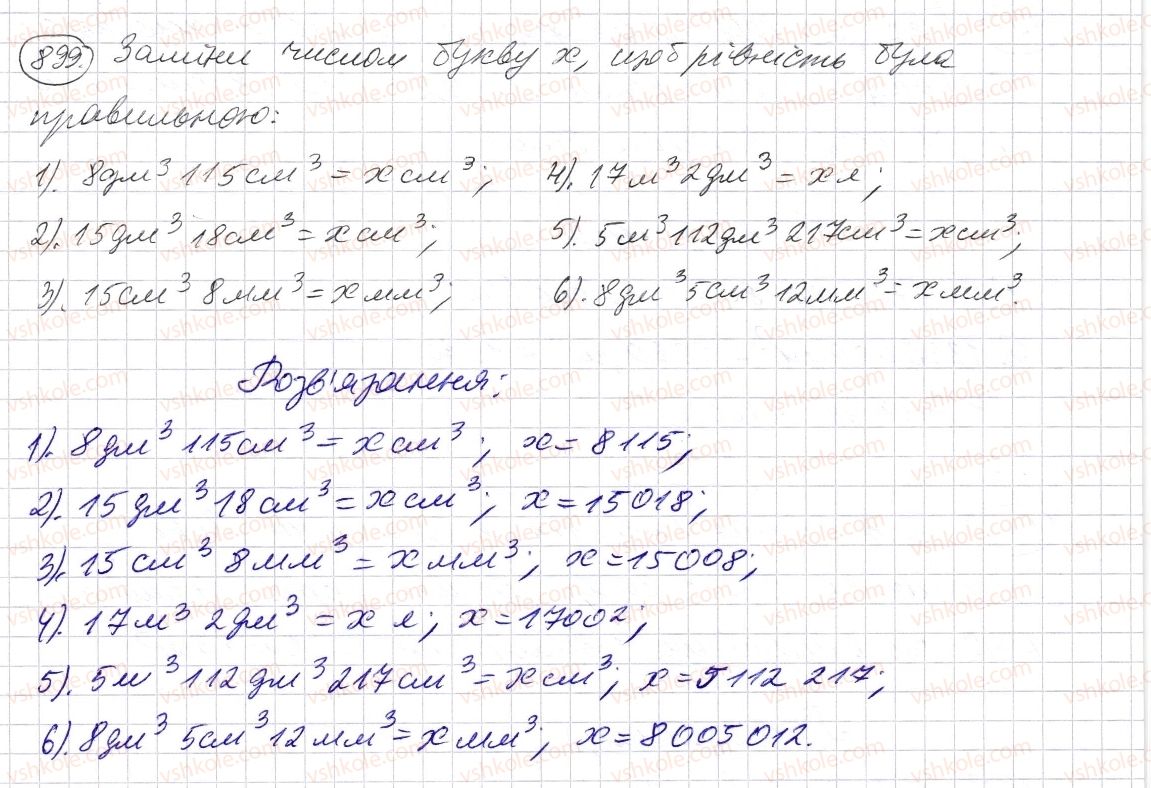 899. Заміни числом букву x, щоб рівність була
правильною:
1). 8дм³ 115см³ = x см³; 4). 17м³ 2дм³ = x л;
2). 15дм³ 18см³ = x см³; 5). 5м³ 112дм³ 217см³ = x см³;
3). 15см³ 8мм³ = x мм³; 6). 8дм³ 5см³ 12мм³ = x мм³.
Розв'язання:
1). 8дм³ 115см³ = x см³; x = 8115;
2). 15дм³ 18см³ = x см³; x = 15018;
3). 15см³ 8мм³ = x мм³; x = 15008;
4). 17м³ 2дм³ = x л; x = 17002;
5). 5м³ 112дм³ 217см³ = x см³; x = 5112 217;
6). 8дм³ 5см³ 12мм³ = x мм³; x = 8005012.
vshkole.com